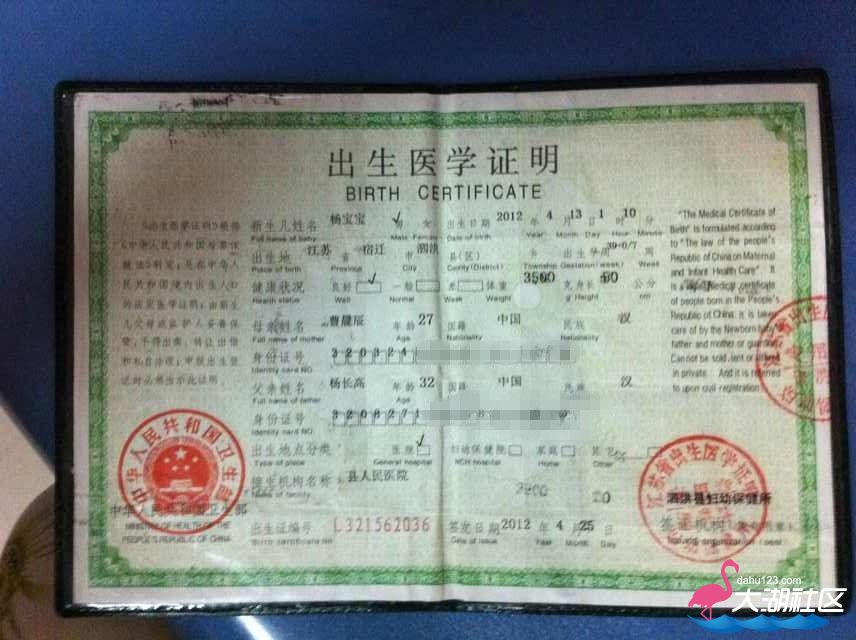 出生医学证明
BIRTH CERTIFICATE
《出生医学证明》根据
《中华人民共和国母婴保
健法》制定，是在中华人
民共和国境内出生人口
的法定医学证明，由新生
儿父母或监护人妥善保
管，不得出卖、转让出借
和私自涂改，申报出生登
记时必须出示此证明。
新生儿姓名 杨宝宝 男 女 出生日期 2012 年 4 月 13 日 1 时 10 分
Full name of baby Male Female Date of birth Year Month Day Hour Minute
出生地 江苏 省 宿迁 市 泗洪 县(区) 出生孕周 39+0/7 周
Place of birth Province City County (District) Township Gestation (week) Week
健康状况 良好 一般 差 体重 3500 克 身长 50 公分
Health status Well Normal Weak Weight g Height cm
母亲姓名 年龄 27 国籍 中国 民族 汉
Full name of mother Age Nationality Nationality
身份证号 320324
Identity card NO.
父亲姓名 杨长高 年龄 32 国籍 中国 民族 汉
Full name of father Age
身份证号 3208271
Identity card NO.
出生地点分类 医院 妇幼保健院 家庭 其它
Type of place General hospital MCH hospital Home Other
接生机构名称 县人民医院
Name of facility
出生证编号 L321562036 签发日期 2012 年 4 月 25 日
Birth certificate No Date of issue Year Month Day
"The Medical Certificate of
Birth" is formulated according
to "The law of the people's
Republic of China on Maternal
and Infant Health Care". It
is a legal Medical certificate
of people born in the People's
Republic of China. it is taken
care of by the Newborn baby's
father and mother or guardian.
Cannot be sold, lent or altered
in private. And it is referred
to upon civil registration.
中华人民共和国卫生部
中华人民共和国卫生部
MINISTRY OF HEALTH OF THE
PEOPLE'S REPUBLIC OF CHINA
江苏省出生医学证明
泗洪县妇幼保健所
签证机构
Issuing organization (seal)
dahu123.com
大湖社区